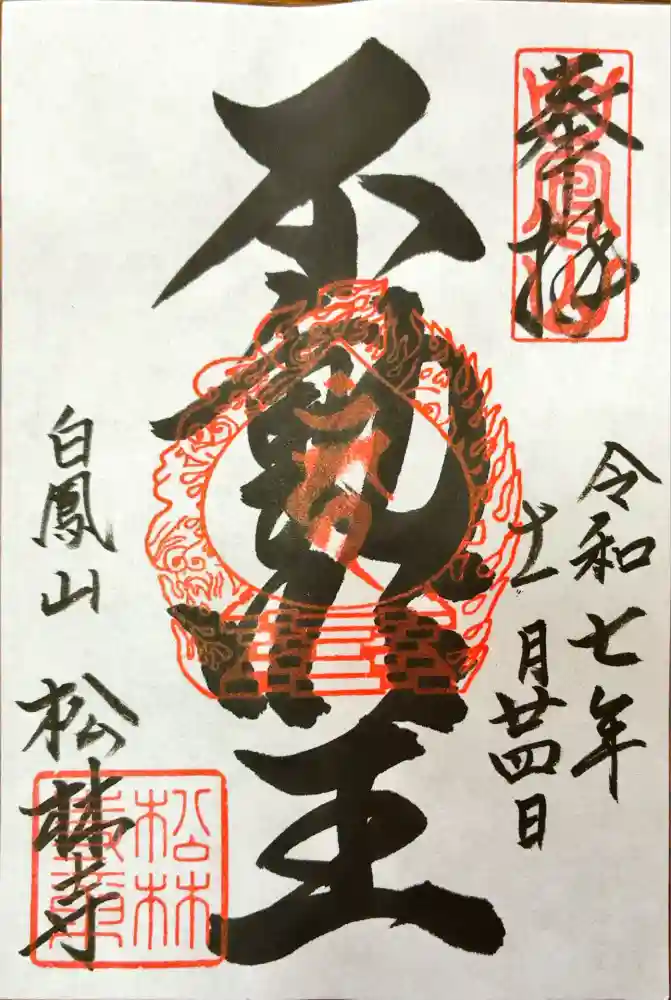 奉拝
白鳳山
令和七年
十一月廿四日
不動明王
白鳳山 松林寺
松林